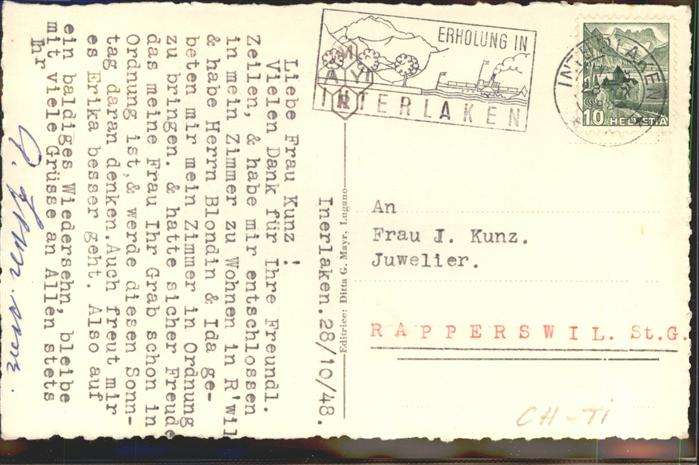 Inerlaken.28/10/48.
Liebe Frau Kunz !
Vielen Dank für Ihre Freundl.
Zeilen, & habe mir entschlossen
in mein Zimmer zu Wohnen in R'wil
& habe Herrn Blondin & Ida ge-
beten mir mein Zimmer in Ordnung
zu bringen. & hatte sicher Freude
das meine Frau Ihr Grab schon in
Ordnung ist,& werde diesen Sonn-
tag daran denken.Auch freut mir
es Erika besser geht. Also auf
ein baldiges Wiedersehn, bleibe
mit viele Grüsse an Allen stets
Ihr
Editrice: Ditta G. Mayr, Lugano
ERHOLUNG IN
INTERLAKEN
INTERLAKEN
10 HELVETIA
An
Frau J. Kunz.
Juwelier.
RAPPERSWIL. St.G.
CH-TI